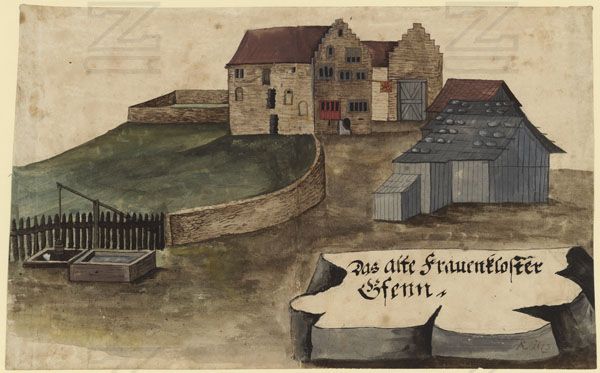 Das alte Frauenkloster
Gfenn.